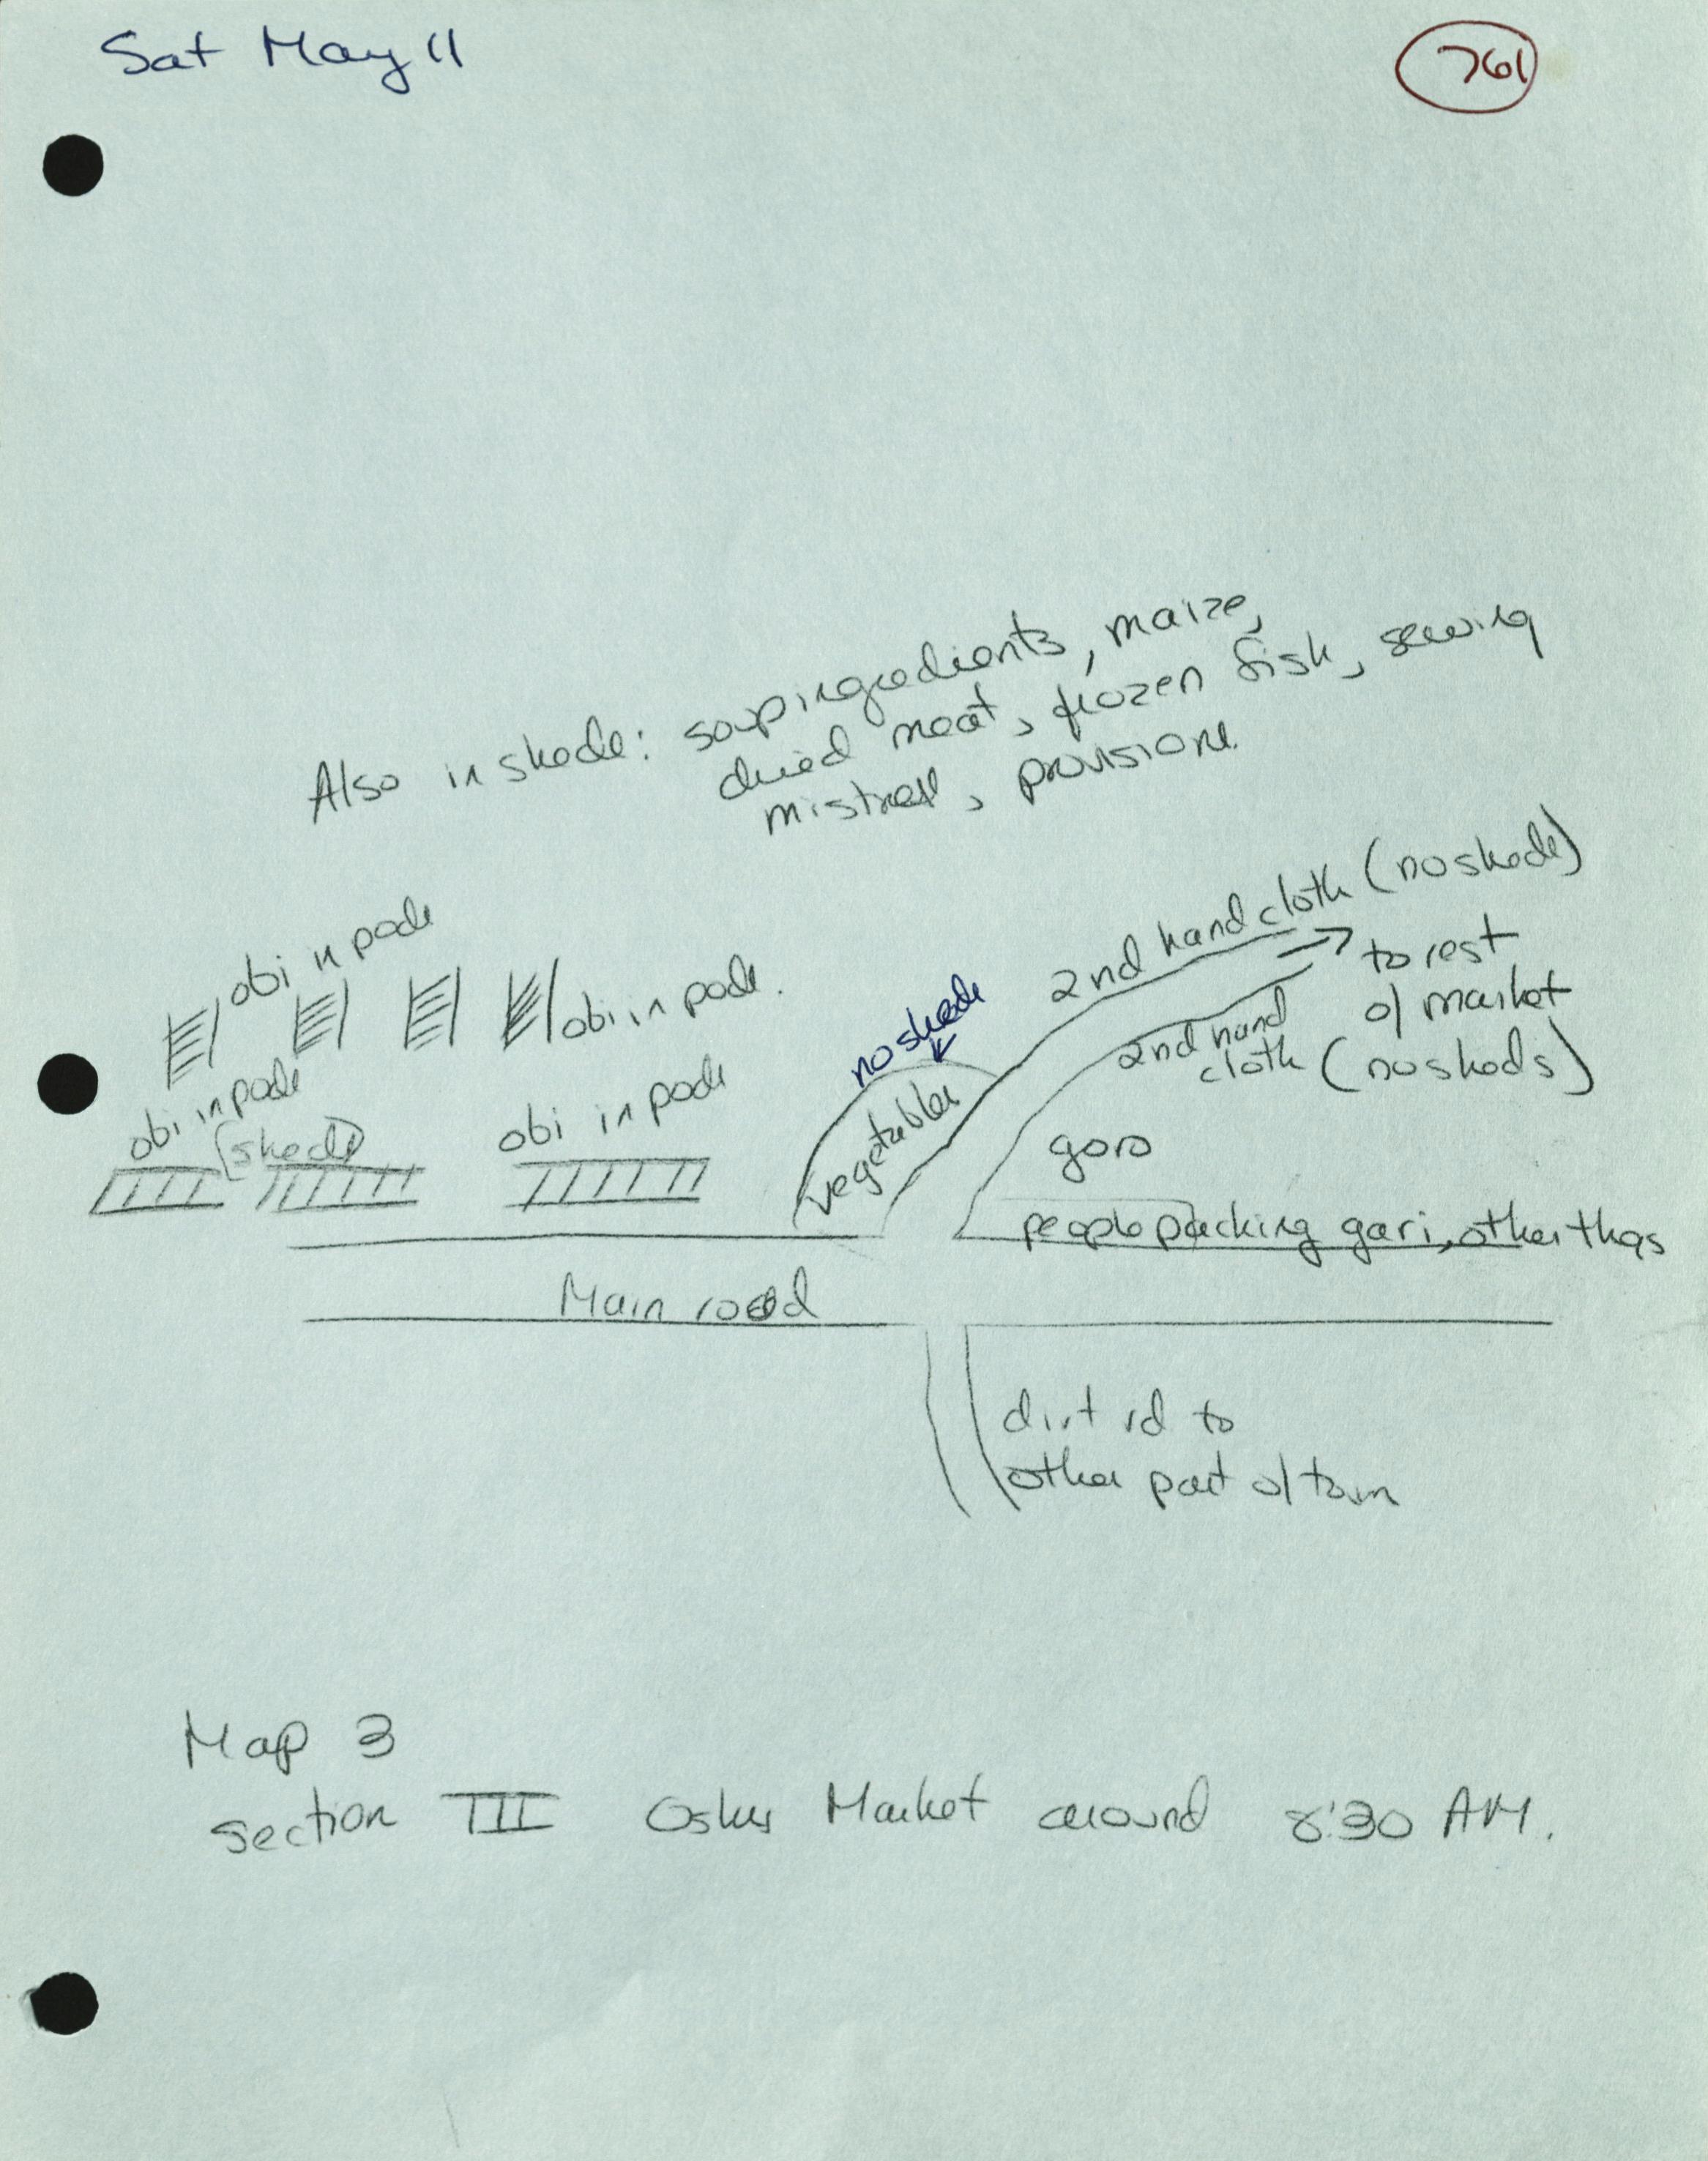 Sat May 11
761
Also in shade: soup ingredients, maize,
dried meat, frozen fish, sewing
mistress, provisions.
2nd hand cloth (no shade)
to rest
of market
2nd hand
cloth (no sheds)
obi n pade
obi in pade.
no shade
obi in pade
(sheds)
obi in pade
vegetables
goro
people packing gari, other thgs
Main road
dirt rd to
other part of town
Map 3
Section III Market around 8:30 AM.